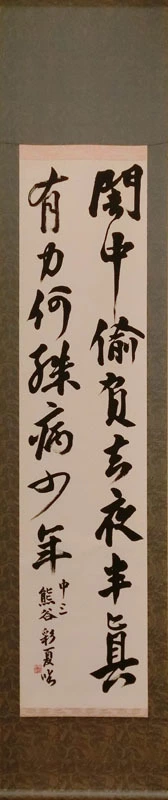 闇中偷負去夜半真
有力何殊病少年
中三
熊谷彩夏